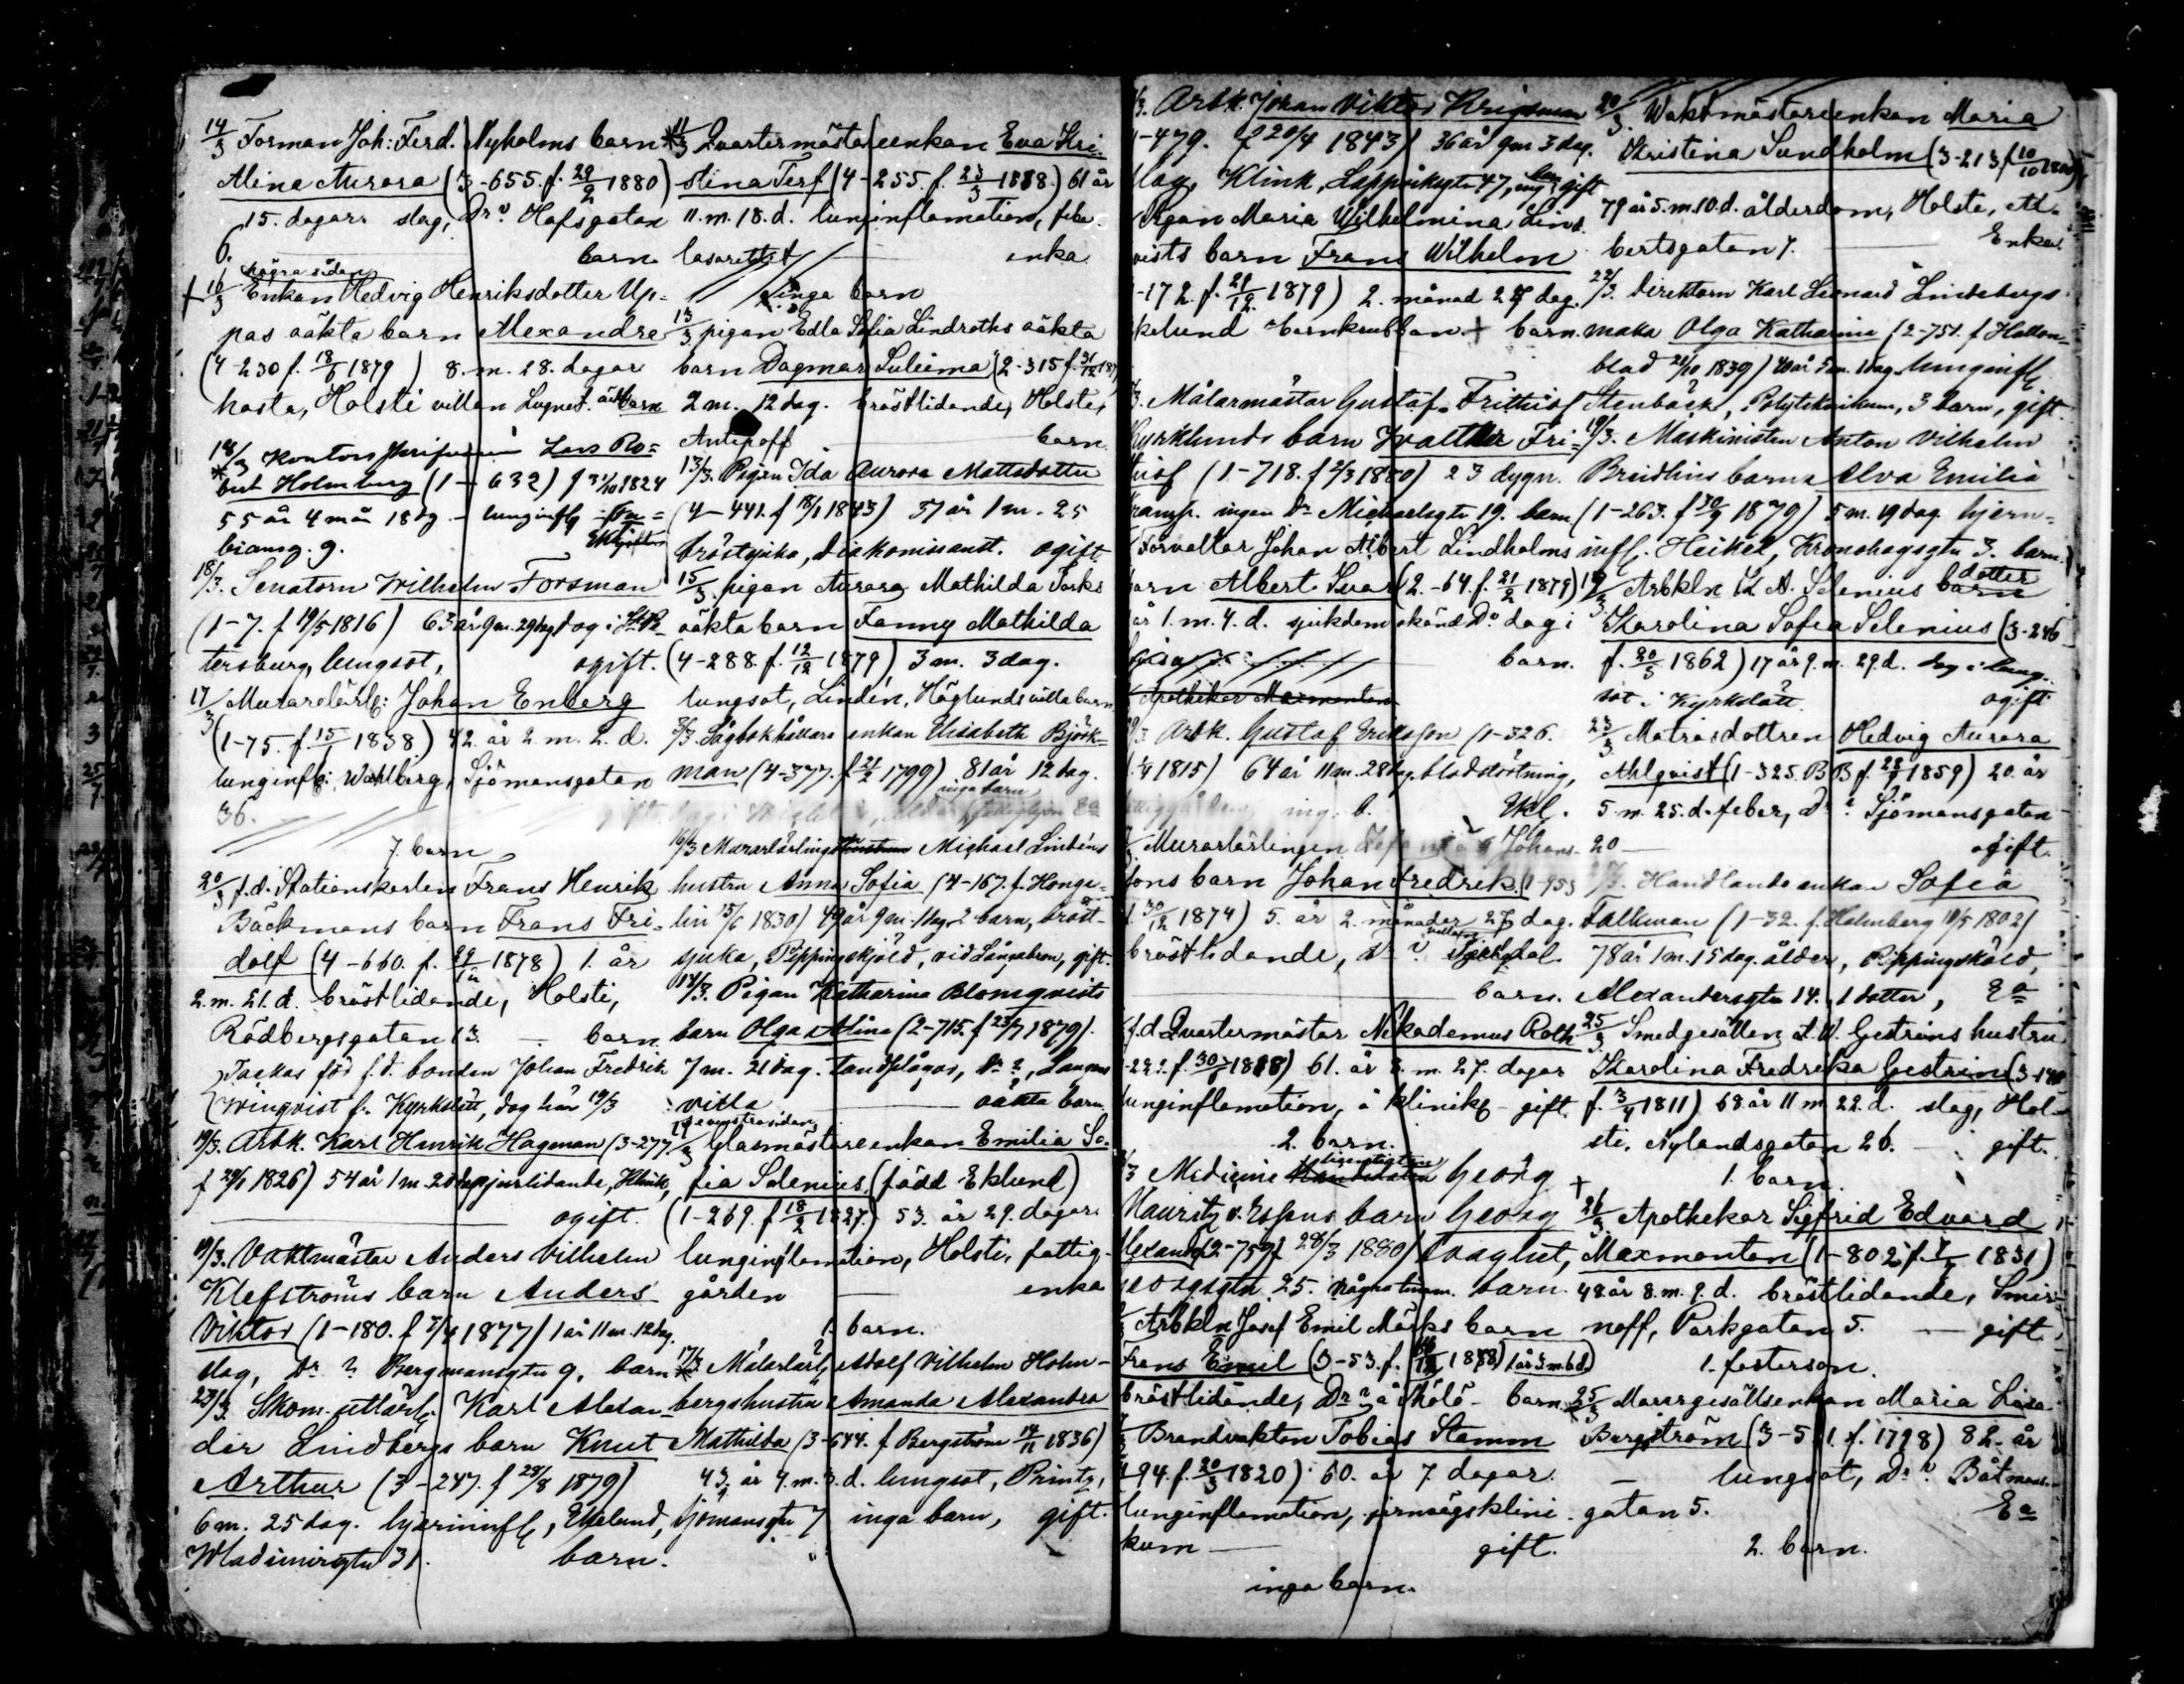 14/3 Forman Joh: Ferd. Nyholms barn
Alina Aurora (3-655. f. 28/2 1880)
15. dagar. slag, Dr ? Hafsgatan
6. barn
några sidan
+ 16/3 Enkan Hedvig Henriksdotter Up-
pas oäkta barn Alexandra
(4-230 f. 18/6 1879) 8. m. 28. dagar
hosta, Holsti villan Lugnet. barn
18/3 Lars Ro-
bert Holmberg (1-632) f 31/10 1824
55 år 4 mån 18 dg - lunginfl
biansg. 9.
18/3. Senatorn Wilhelm Forsman
(1-7. f 19/5 1816) 63 år 9 m. 29 dag dog i St. Pe-
tersburg, lungsot, ogift.
17/3 Murarelärl: Johan Enberg
(1-75. f 15/1 1838) 42. år 2 m. 2. d.
lunginfl: Wahlberg, Sjömansgatan
36.
7. barn
20/3 f.d. Stationskarlen Frans Henrik
Bäckmans barn Frans Fri-
dolf (4-660. f. 29/12 1878) 1. år
2. m. 21. d. bröstlidande, Holsti,
Rödbergsgatan 13. barn
Backas föd f.d. bonden Johan Fredrik
Winqvist fr. Kyrkslätt, dog här 19/3
19/3. Arbk. Karl Henrik Hagman (3-277
f 29/1 1826) 54 år 1 m. 20 dag hjertlidande, Klinik,
ogift.
19/3. Vaktmästar Anders Vilhelm
Klefströms barn Anders
Viktor (1-180. f 7/4 1877) 1 år 11 m. 12 dag.
slag, Dr. ? Bergmansgtn 9, barn
23/3. Skom. utlärl: Karl Alexan-
der Lindbergs barn Knut
Arthur (3-247. f 29/8 1879)
6 m. 25 dag. hjerninfl, Ekelund,
Wladimirsgtn 31. barn.
* 11/3 Qvartermästareenkan Eva Kri-
stina Terf (4-255. f. 23/3 1818.) 61 år
11. m. 18. d. lunginflamation, feber
lasarettet enka
inga barn
13/3 pigan Edla Sofia Lindroths oäkta
barn Dagmar Suliema (2-315 f. 31/12 187
2 m. 12 dag. bröstlidande, Holsti,
Antipoff barn
13/3. Pigan Ida Aurora Mattsdotter
(4-441. f 18/1 1843) 37 år 1 m. 25
bröstsjuka, Diakonissanst. ogift
15/3 pigan Aurora Mathilda Torks
oäkta barn Fanny Mathilda
(4-288. f. 12/12 1879) 3 m. 3 dag.
lungsot, Lindén, Höglunds villa barn
3/3. Sågbokhållare enkan Elisabeth Björk-
man (4-377. f 21/2 1799) 81 år 12 dag.
inga barn
16/3 Murarlärling Michael Lindéns
hustru Anna Sofia (4-167. f. Honge-
lin 15/6 1830) 49 år 9 m. 1 dag. 2 barn, bröst-
sjuka, Pippingskjöld, vid Långabron, gift.
14/3. Pigan Katharina Blomqvists
barn Olga Alina (2-715. f 23/7 1879).
7 m. 21 dag. tandplågor, Dr ?, Langens
villa oäkta barn
19/3 Glasmästareenkan Emilia So-
fia Selenius (född Eklund)
(1-269. f 18/2 1827.) 53. år 29. dagar
lunginflamation, Holsti, fattig-
gården enka
1. barn.
17/3 Målarlärl, Adolf Vilhelm Holm-
bergs hustru Amanda Alexandra
Mathilda (3-644. f Bergström 14/11 1836)
43 år 4. m. 3. d. lungsot, Printz,
Sjömansgtn 7 inga barn, gift.
/3. Arbk. Johan Viktor Krigsman
1-479. f 20/4 1843) 36 år 9 m 3 dag.
slag, Klink, Lappviksgtn 47, gift
Pigan Maria Wilhelmina Lind-
qvists barn Frans Wilhelm
-172. f. 21/12 1879) 2. månad 27 dag.
kelund barnkrubban + barn.
/3. Målarmästar Gustaf Frithiof
Kyrklunds barn Walther Fri-
thiof (1-718. f 2/3 1880) 23 dygn.
kramp. ingen Dr Michaelsgtn 19. barn
Förvaltar Johan Albert Lindholms
barn Albert Ivar (2.-64. f. 21/2 1879)
år 1. m. 4. d. sjukdom okänd Dr. dog i
barn.
Apothekar Maxmontan
/3 Arbk. Gustaf Eriksson (1-326.
1/4 1815) 64 år 11 m. 28 dag. blodstörtning,
ing. b. Ekl.
/3 Murarlärlingen Johans-
sons barn Johan Fredrik (1-953
f. 30/12 1874) 5. år 2. månader 27 dag.
bröstlidande, Dr ? barn.
f.d. Qvartermästar Nikodemus Roth
-222. f. 30/6 1818) 61. år 8. m. 27. dagar
lunginflamation, å klinike - gift
2. barn.
/3 Medicine licentiaten Georg
Mauritz v. Essens barn Georg
Alexander (2-759 f 28/3 1880) svaghet,
Georgsgtn 25. några timm. barn.
/3 Arbkln Josef Emil Marks barn
Frans Emil (3-53. f. /12 1878) 1 år 3 m. 6 d.)
bröstlidande, Dr ? å Thölö - barn
/3 Brandvakten Tobias Stamm
-94. f. 20/3 1820). 60. år 7 dagar.
lunginflamation, jernvägsklini-
kum gift.
inga barn.
20/3. Waktmästareenkan Maria
Kristina Sundholm (3-213 f. 10/10 1800)
79 år 5. m. 10. d. ålderdom, Holsti, Al-
bertsgatan 7. Enka.
22/3. Direktorn Karl Leonard Lindebergs
maka Olga Katharina (2-751. f Hallon-
blad 21/10 1839) 40 år 5 m. 1 dag. lunginfl,
Stenbäck, Polyteknikum, 3 barn, gift
19/3. Maskinisten Anton Vilhelm
Breidlins barn Alva Emilia
(1-263. f 30/9 1879) 5 m. 19 dag. hjern-
infl. Heikel, Kronohagsgtn 3. barn.
19/3 Arbkln A. Selenius dotter
Karolina Sofia Selenius (3-246
f. 20/5 1862) 17 år 9. m. 29. d. dog i lung-
sot i Kyrkslätt. ogift
23/3 Matrosdottren Hedvig Aurora
Ahlqvist (1-325. BB f. 28/9 1859) 20. år
5 m. 25. d. feber, Dr ? Sjömansgatan
20 ogift.
/3. Handlande enkan Sofia
Falkman (1-32. f. Holmberg 10/5 1802)
78 år 1 m. 15 dag. ålder, Pippingsköld,
Alexandersgtn 14. 1 dotter, Ea
25/3 Smedgesällen A. W. Gestrins hustru
Karolina Fredrika Gestrin (3-140
f. 3/4 1811) 68 år 11 m 22. d. slag, Hol-
sti, Nylandsgatan 26. gift.
+ 1. barn.
26/3 Apothekar Sigfrid Edvard
Maxmontan (1-802 f. 1831)
48 år 8. m. 9. d. bröstlidande, Smir-
noff, Parkgatan 5. gift
1. fosterson.
25/3 Murargesällsenkan Maria Lisa
Bergström (3-5 1. f. 1798) 82. år
lungsot, Dr ? Båtmans-
gatan 5. Ea
2. barn.